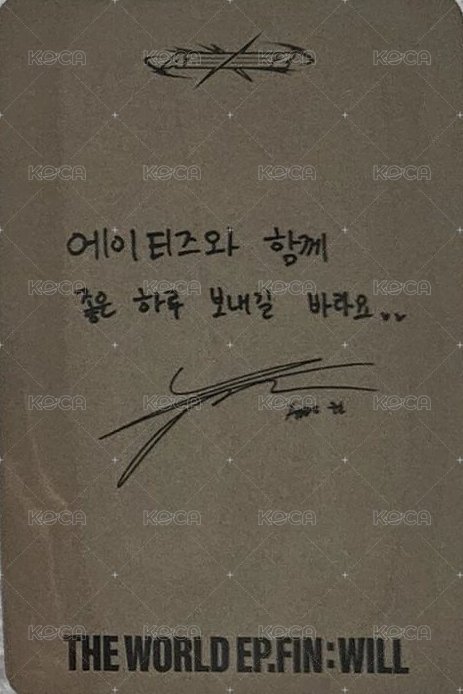 에이티즈와 함께
좋은 하루 보내길 바라요..
THE WORLD EP.FIN:WILL